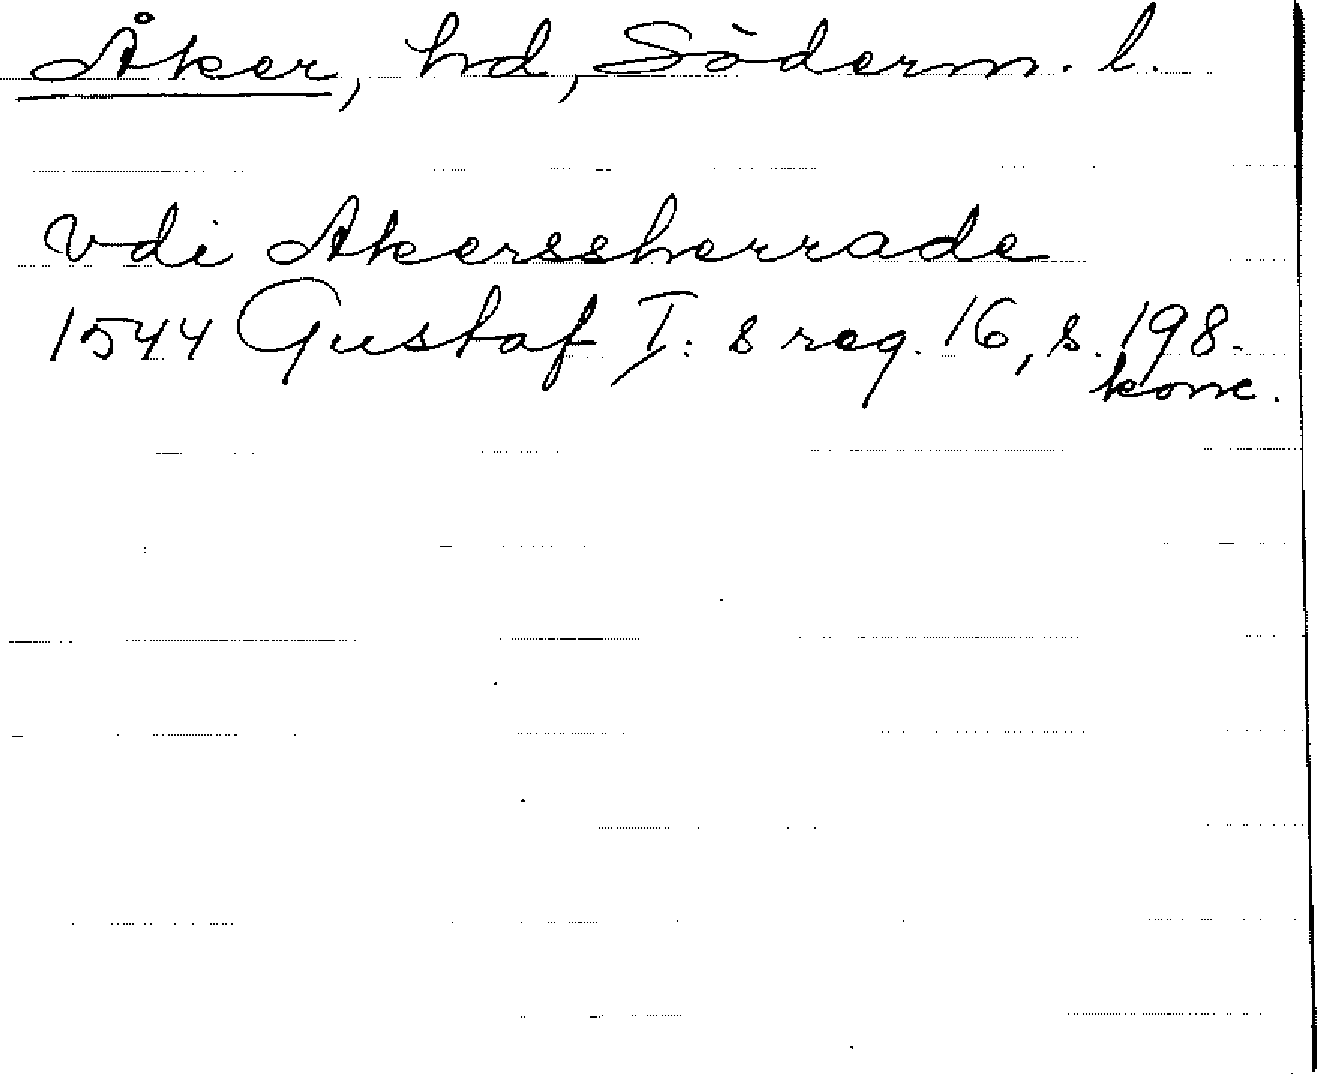 Åker, hd, Söderm. l.
vdi Akerssherrade
1544 Gustaf I:s reg. 16, s. 198.
konc.